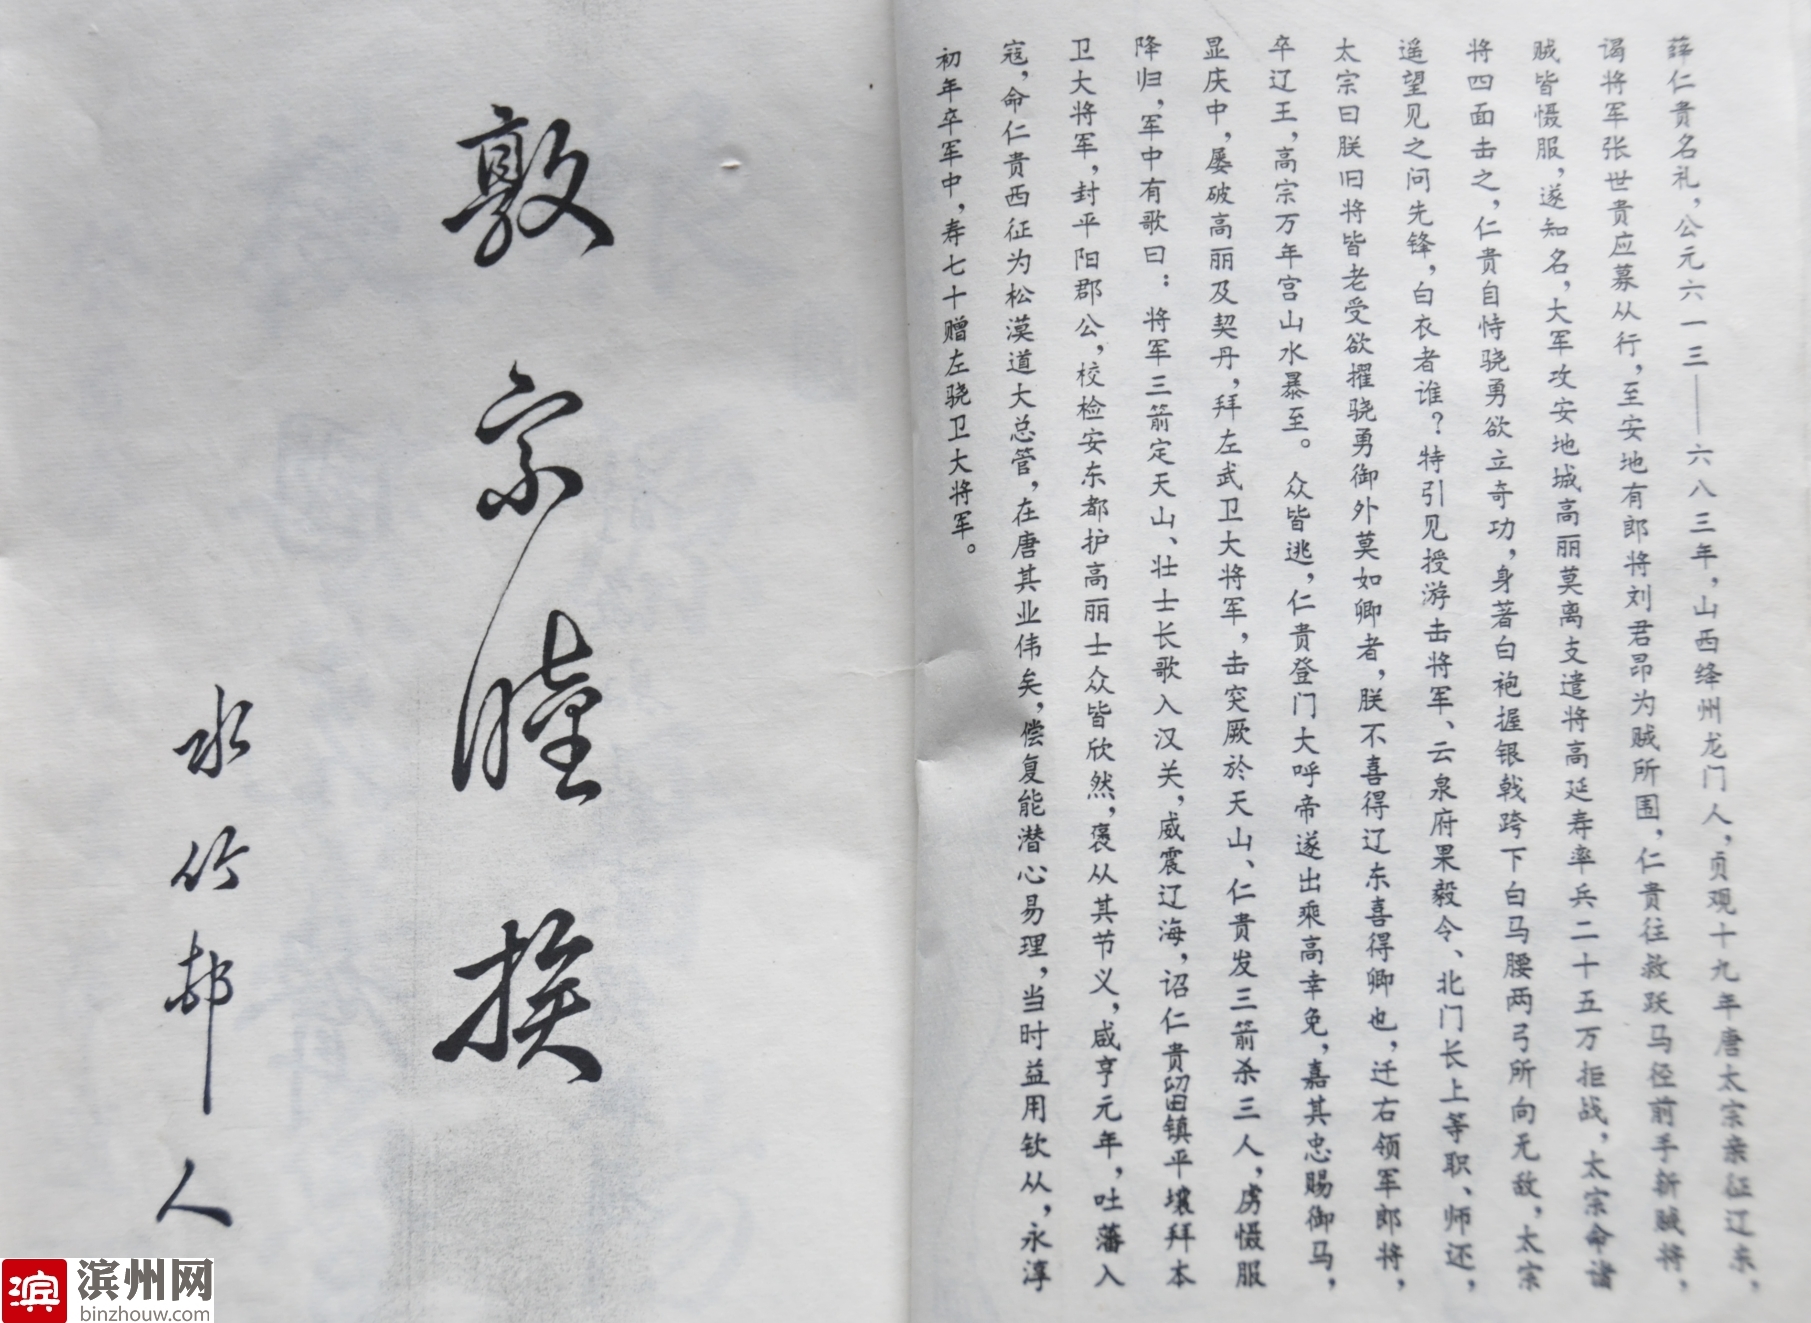 薛仁贵名礼，公元六一三——六八三年，山西绛州龙门人，贞观十九年唐太宗亲征辽东，
谒将军张世贵应募从行，至安地有郎将刘君昂为贼所围，仁贵往救跃马径前手斩贼将，
贼皆慑服，遂知名，大军攻安地城高丽莫离支遣将高延寿率兵二十五万拒战，太宗命诸
将四面击之，仁贵自恃骁勇欲立奇功，身著白袍握银戟跨下白马腰两弓所向无敌，太宗
遥望见之问先锋，白衣者谁？特引见授游击将军、云泉府果毅令、北门长上等职、师还，
太宗曰朕旧将皆老受欲擢骁勇御外莫如卿者，朕不喜得辽东喜得卿也，迁右领军郎将，
卒辽王，高宗万年宫山水暴至。众皆逃，仁贵登门大呼帝遂出乘高幸免，嘉其忠赐御马，
显庆中，屡破高丽及契丹，拜左武卫大将军，击突厥於天山、仁贵发三箭杀三人，虏慑服
降归，军中有歌曰：将军三箭定天山、壮士长歌入汉关，威震辽海，诏仁贵留镇平壤拜本
卫大将军，封平阳郡公，校检安东都护高丽士众皆欣然，褒从其节义，咸亨元年，吐藩入
寇，命仁贵西征为松漠道大总管，在唐其业伟矣，偿复能潜心易理，当时益用钦从，永淳
初年卒军中，寿七十赠左骁卫大将军。
敦宗睦族
水竹邨人
滨州网
binzhouw.com